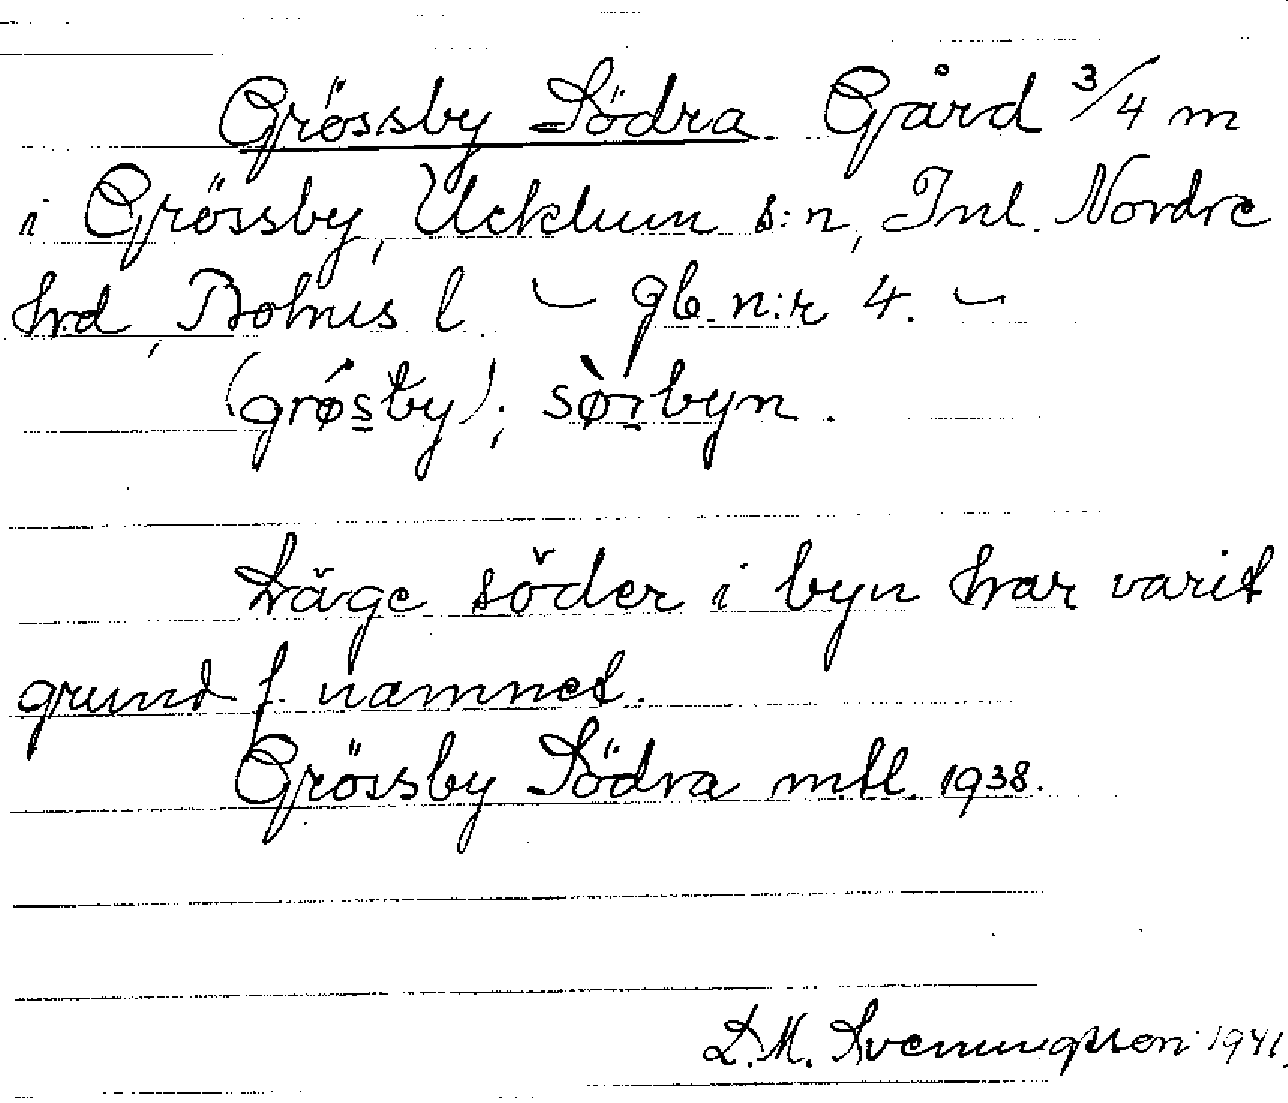 Grössby Södra. Gård 3/4 m
i Grössby, Ucklum s:n, Inl. Nordre
hrd, Bohus l. — gb. n:r 4. —
(grǿsby); sø̀rbyn.
Läge söder i byn har varit
grund f. namnet.
Grössby Södra mtl. 1938.
D.M. Svenungsson 1941.